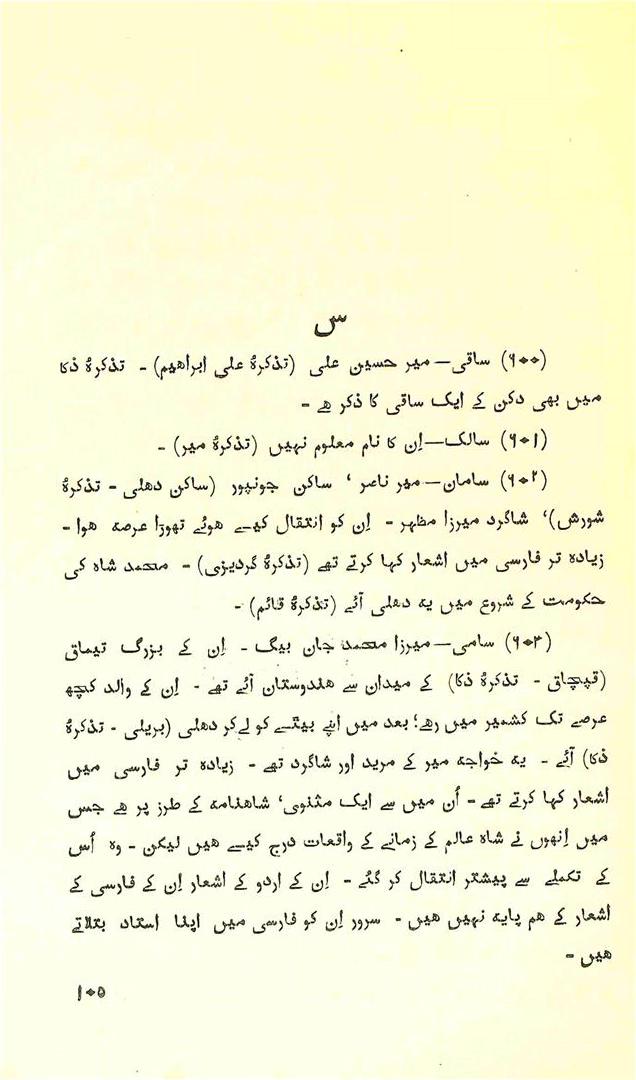 س
(۶۰۰) ساقی—میر حسین علی (تذکرۂ علی ابراهیم) - تذکرۂ ذکا
میں بھی دکن کے ایک ساقی کا ذکر هے -
(۶۰۱) سالک—اِن کا نام معلوم نہیں (تذکرۂ میر) -
(۶۰۲) سامان—میر ناصر ‘ ساکن جونپور (ساکن دهلی - تذکرۂ
شورش)‘ شاگرد میرزا مظہر - اِن کو انتقال کیے هوئے تھوڑا عرصہ هوا -
زیادہ تر فارسی میں اشعار کہا کرتے تھے (تذکرۂ گردیزی) - محمد شاہ کی
حکومت کے شروع میں یہ دهلی آئے (تذکرۂ قائم) -
(۶۰۳) سامی—میرزا محمد جان بیگ - اِن کے بزرگ تیماق
(قپچاق - تذکرۂ ذکا) کے میدان سے هندوستان آئے تھے - اِن کے والد کچھ
عرصے تک کشمیر میں رهے؛ بعد میں اپنے بیٹے کو لےکر دهلی (بریلی - تذکرۂ
ذکا) آئے - یہ خواجہ میر کے مرید اور شاگرد تھے - زیادہ تر فارسی میں
اشعار کہا کرتے تھے - اُن میں سے ایک مثنوی‘ شاهنامہ کے طرز پر هے جس
میں اِنھوں نے شاہ عالم کے زمانے کے واقعات درج کیے هیں لیکن - وہ اُس
کے تکملے سے پیشتر انتقال کر گئے - اِن کے اردو کے اشعار اِن کے فارسی کے
اشعار کے هم پایہ نہیں هیں - سرور اِن کو فارسی میں اپنا استاد بتلاتے
هیں -
۱۰۵